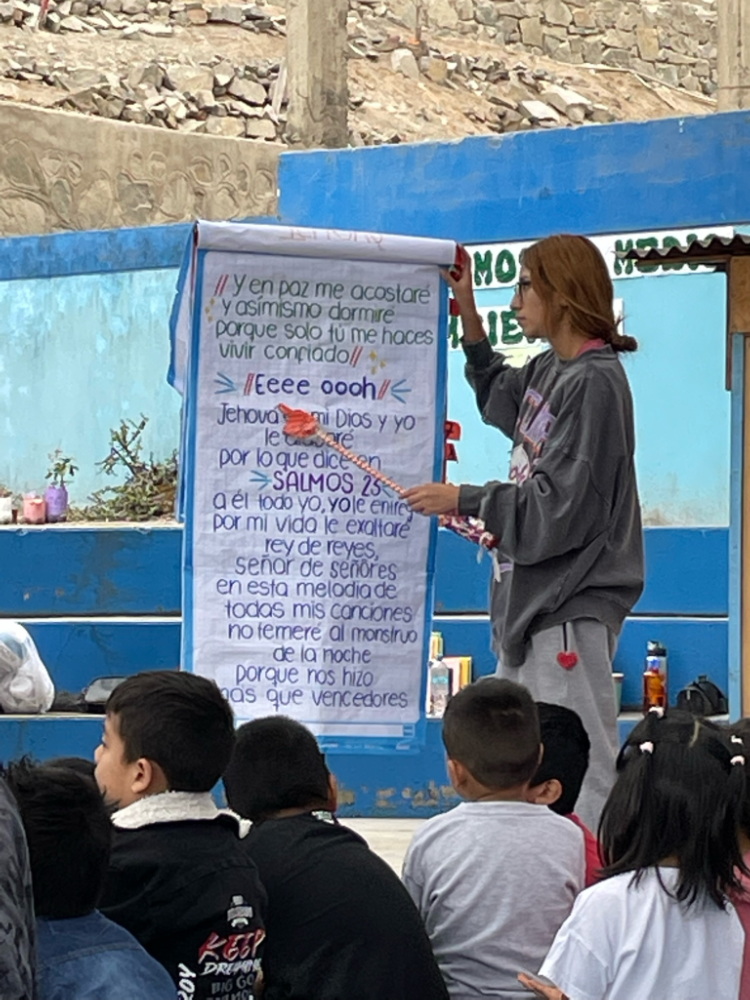 // Y en paz me acostaré
y asimismo dormiré
porque solo tú me haces
vivir confiado //
// Eeee oooh //
Jehová mi Dios y yo
le
por lo que dice en
SALMOS 23
a él todo yo, yo le
por mi vida le exaltaré
rey de reyes,
señor de señores
en esta melodia de
todas mis canciones
no temeré al monstruo
de la noche
porque nos hizo
mas que vencedores
KEEP